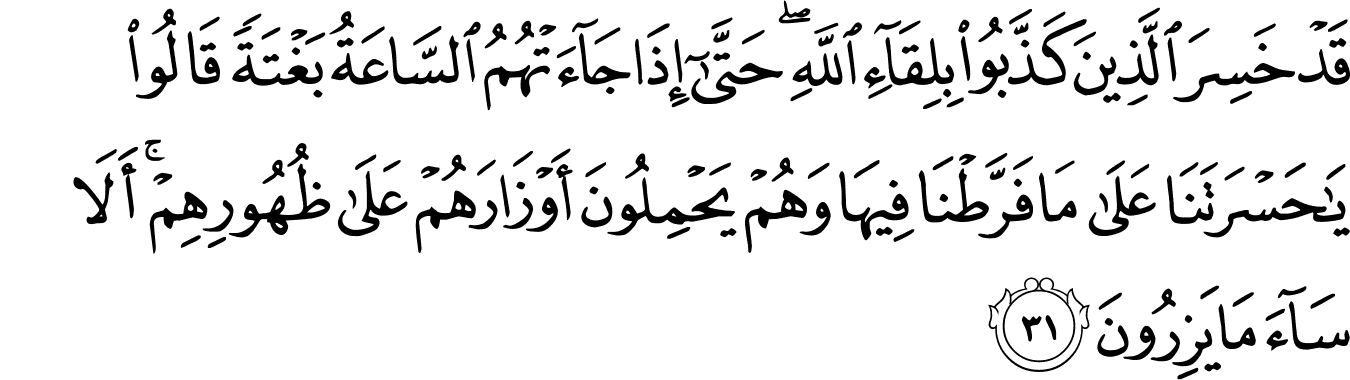 قَدۡ خَسِرَ ٱلَّذِينَ كَذَّبُواْ بِلِقَآءِ ٱللَّهِۖ حَتَّىٰٓ إِذَا جَآءَتۡهُمُ ٱلسَّاعَةُ بَغۡتَةٗ قَالُواْ
يَٰحَسۡرَتَنَا عَلَىٰ مَا فَرَّطۡنَا فِيهَا وَهُمۡ يَحۡمِلُونَ أَوۡزَارَهُمۡ عَلَىٰ ظُهُورِهِمۡۚ أَلَا
سَآءَ مَا يَزِرُونَ ٣١